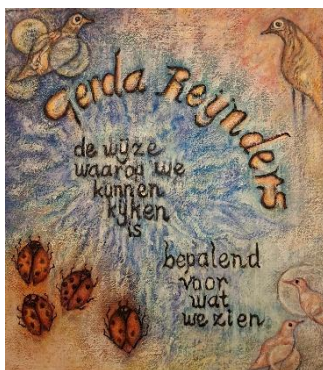 Gerda Reijnders
de wijze
waarop we
kunnen
kijken
is
bepalend
voor
wat
we zien